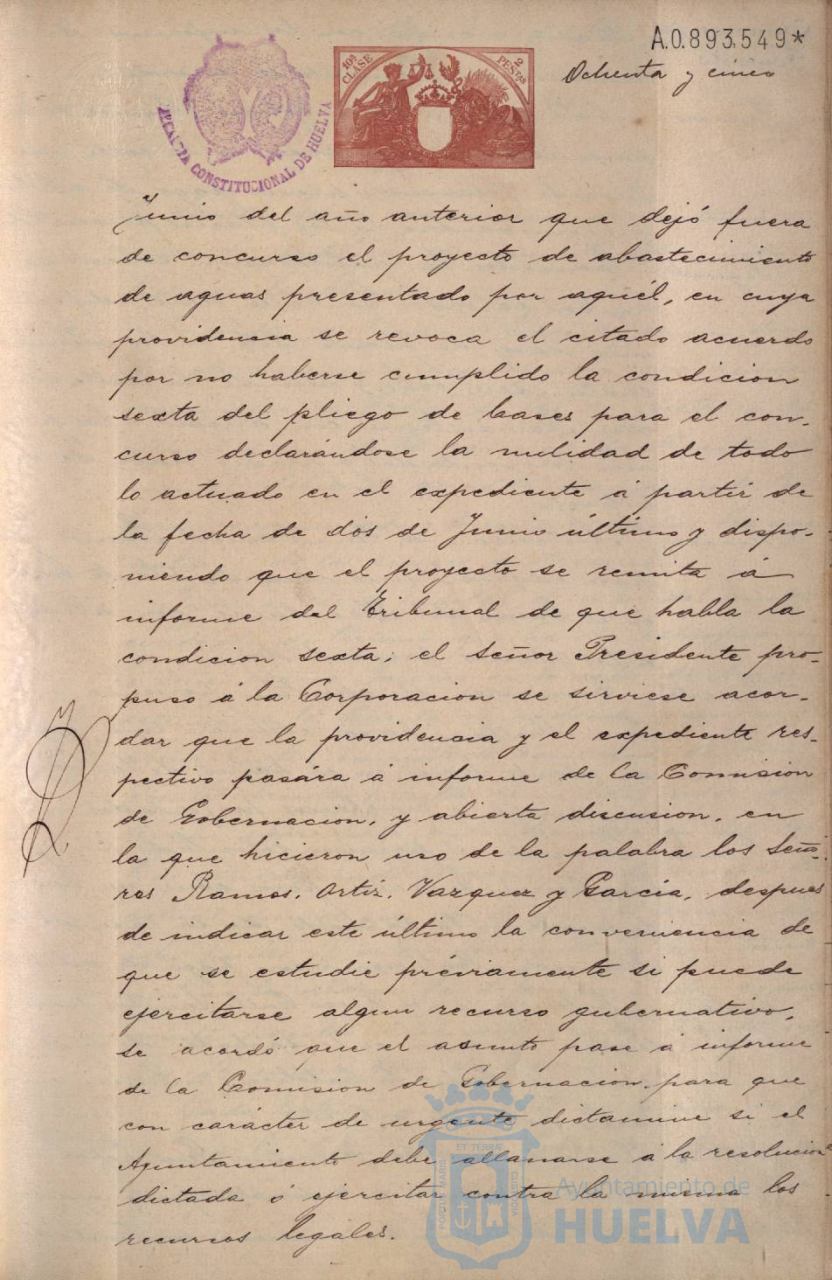 A.0.893.549*
Ochenta y cinco
10ª CLASE
2 PESTAS
ALCALDIA CONSTITUCIONAL DE HUELVA
Junio del año anterior que dejó fuera
de concurso el proyecto de abastecimiento
de aguas presentado por aquél, en cuya
providencia se revoca el citado acuerdo
por no haberse cumplido la condicion
sexta del pliego de bases para el con-
curso declarándose la nulidad de todo
lo actuado en el expediente á partir de
la fecha de dos de Junio último y dispo-
niendo que el proyecto se remita á
informe del Tribunal de que habla la
condicion sexta; el señor Presidente pro-
puso á la Corporacion se sirviese acor-
dar que la providencia y el expediente res-
pectivo pasára á informe de la Comision
de Gobernacion, y abierta discusion, en
la que hicieron uso de la palabra los Seño-
res Ramos, Ortiz, Vazquez y Garcia, despues
de indicar este último la conveniencia de
que se estudie préviamente si puede
ejercitarse algun recurso gubernativo,
se acordó que el asunto pase á informe
de la Comision de Gobernacion para que
con carácter de urgente dictamine si el
Ayuntamiento debe allanarse á la resolucion
dictada ó ejercitar contra la misma los
recursos legales.
Ayuntamiento de
HUELVA